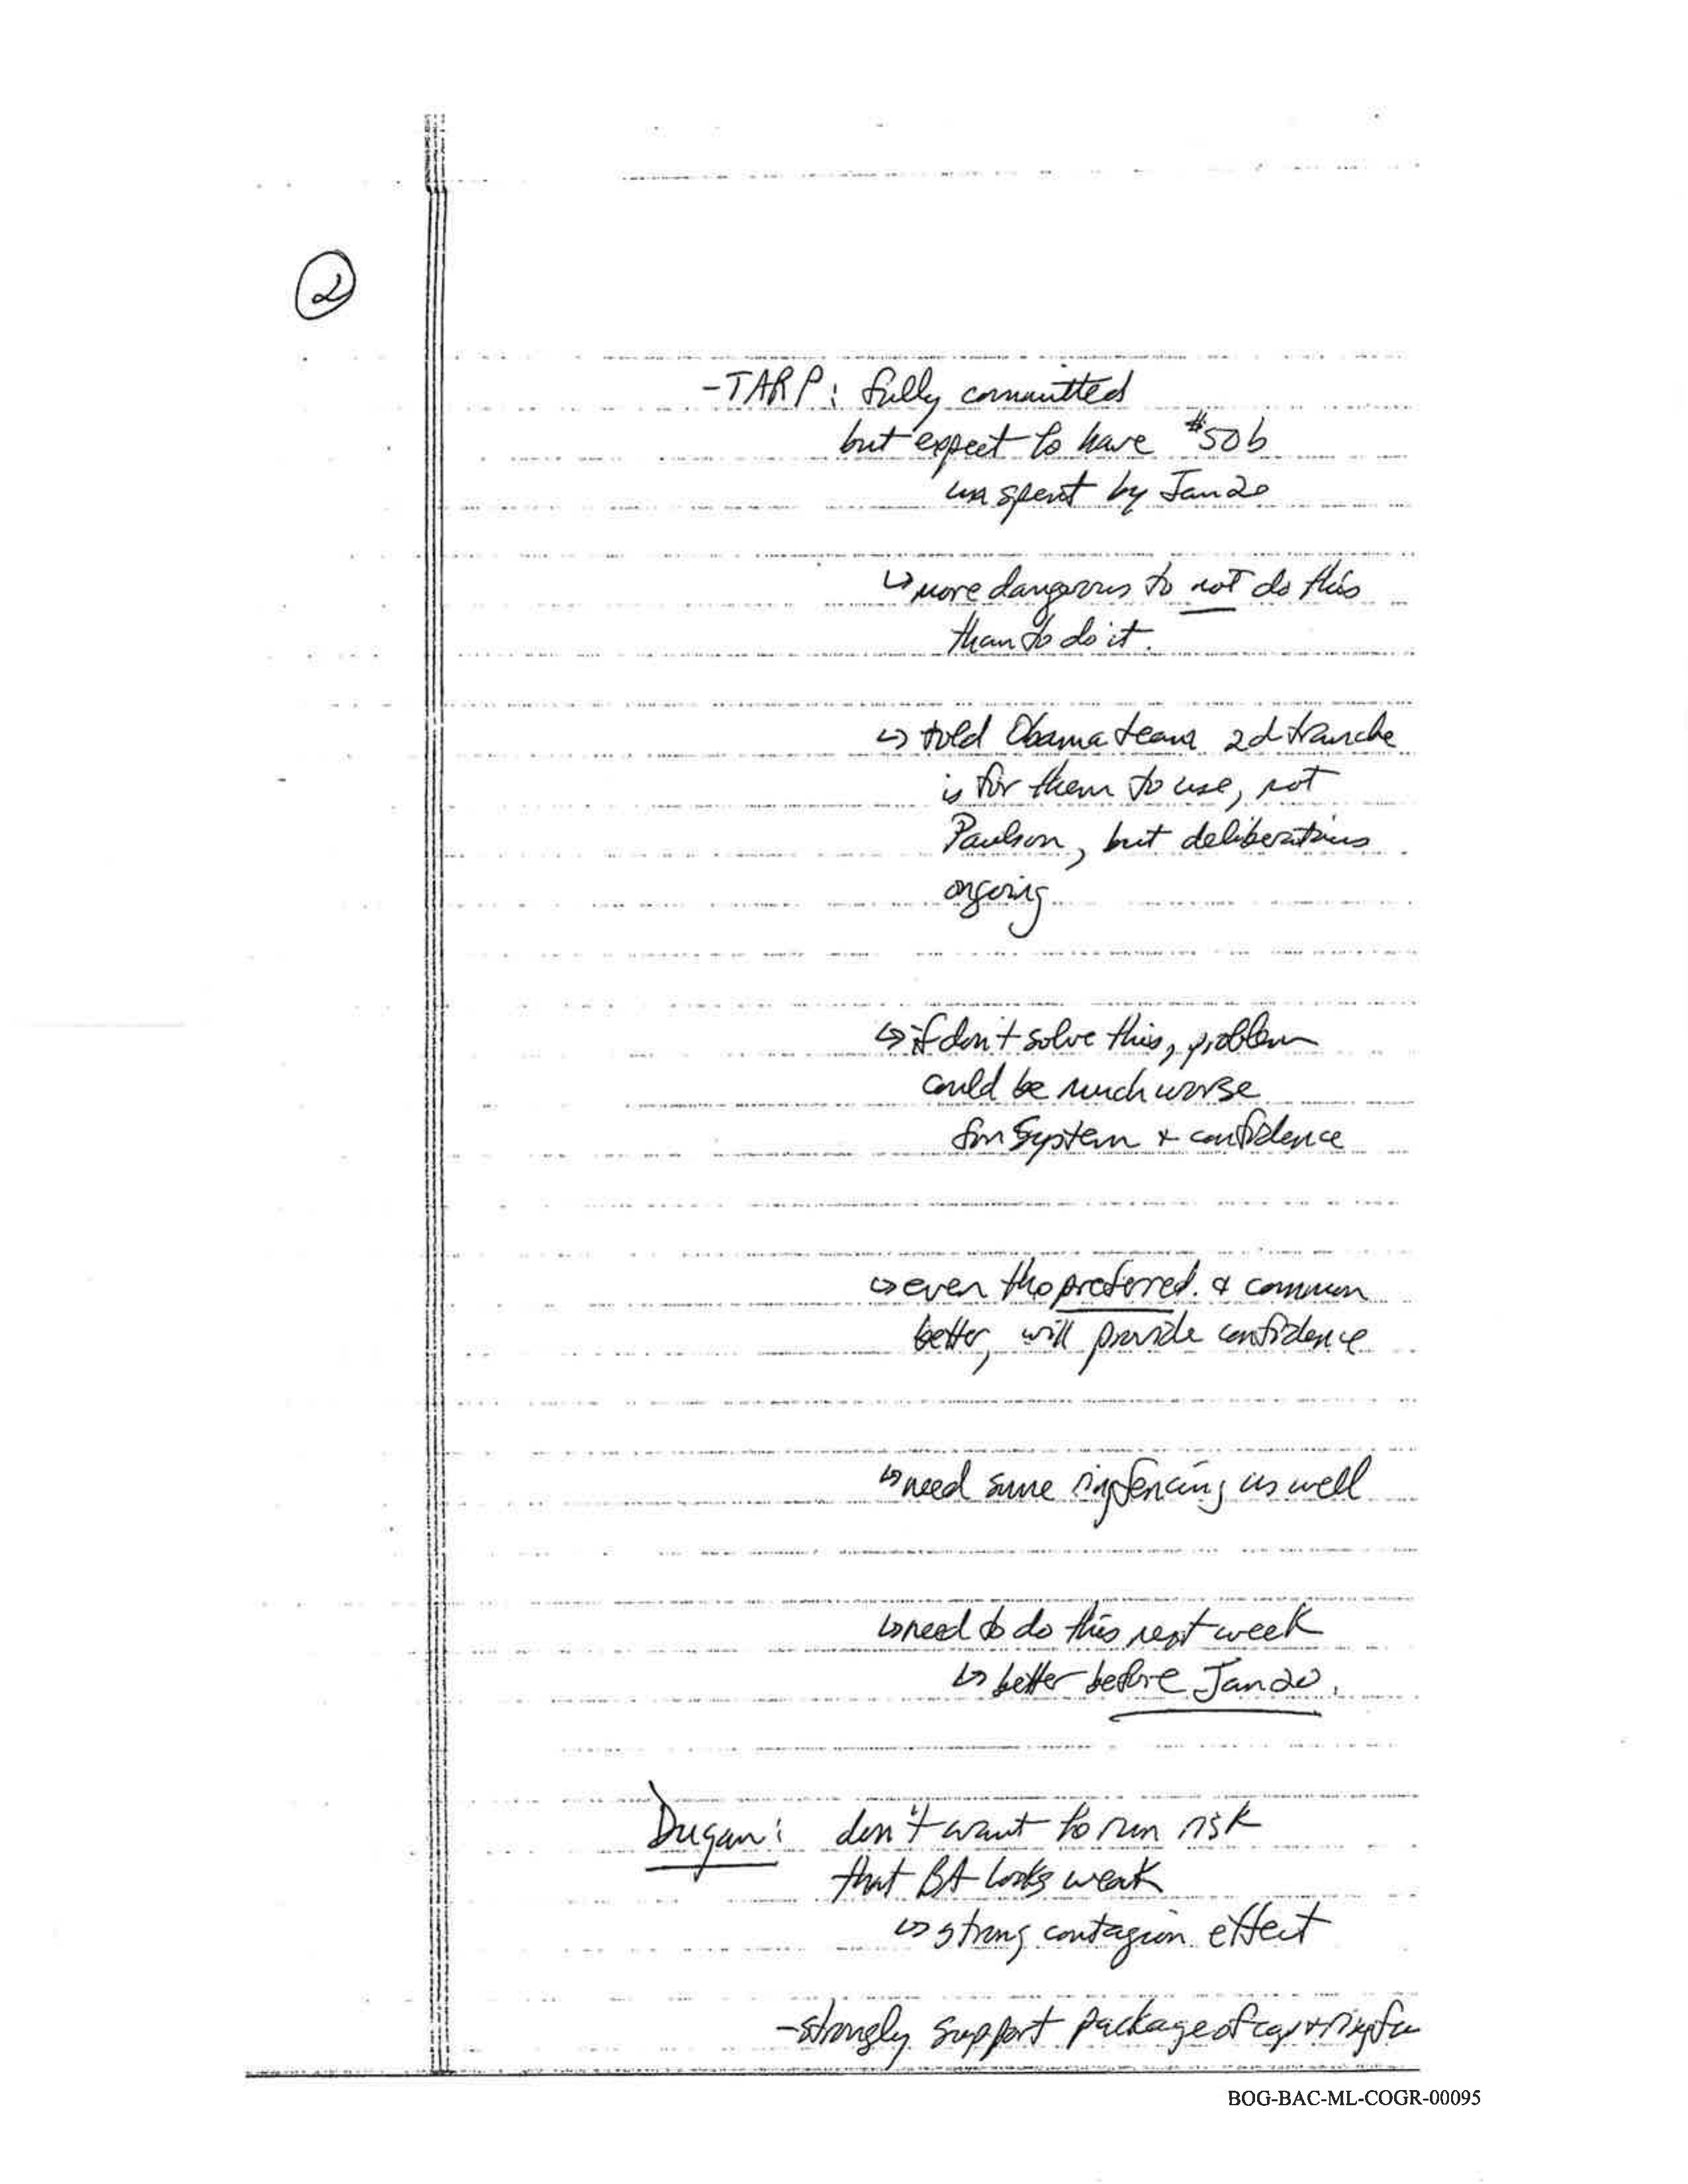 2
-TARP: fully committed
but expect to have $50b
unspent by Jan 20
↳ more dangerous to not do this
than to do it.
↳ told Obama team 2d tranche
is for them to use, not
Paulson, but deliberations
ongoing
↳ if don't solve this, problem
could be much worse
for system + confidence
↳ even tho preferred. & common
better, will provide confidence
↳ need some ringfencing as well
↳ need to do this next week
↳ better before Jan 20.
Dugan: don't want to run risk
that BA looks weak
↳ strong contagion effect
-strongly support package of cap + ringfen
BOG-BAC-ML-COGR-00095